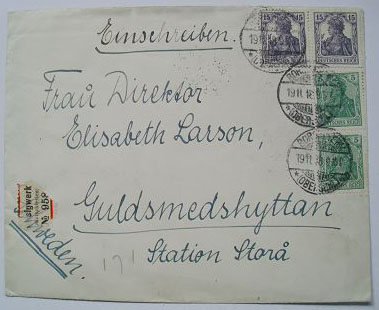 Einschreiben.
15 15
DEUTSCHES REICH
5
5
Frau Direktor
Elisabeth Larson,
Guldsmedshyttan
Station Storå
№ 952
Sweden.
171